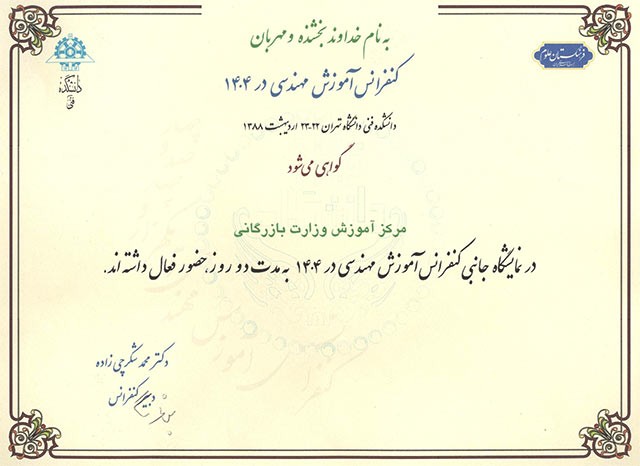 به نام خداوند بخشنده و مهربان
کنفرانس آموزش مهندسی در ۱۴۰۴
دانشکده فنی دانشگاه تهران ۲۲-۲۳ اردیبهشت ۱۳۸۸
گواهی می‌شود
مرکز آموزش وزارت بازرگانی
در نمایشگاه جانبی کنفرانس آموزش مهندسی در ۱۴۰۴ به مدت دو روز، حضور فعال داشته اند.
دکتر محمد شکرچی زاده
دبیر کنفرانس
دانشکده
فنی
فرهنگستان علوم